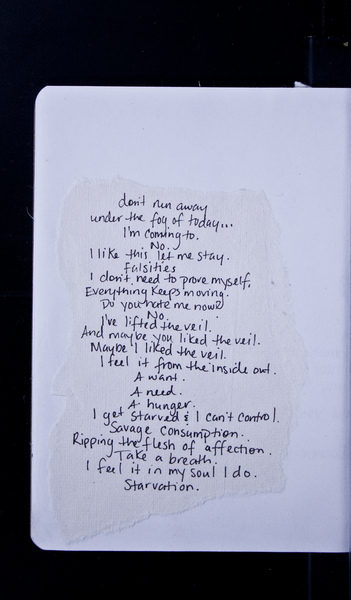 don't run away
under the fog of today...
I'm coming to.
No.
I like this let me stay.
Falsities
I don't need to prove myself.
Everything keeps moving.
Do you hate me now?
No.
I've lifted the veil.
And maybe you liked the veil.
Maybe I liked the veil.
I feel it from the inside out.
A want.
A need.
A hunger.
I get starved & I can't control.
Savage consumption.
Ripping the flesh of affection.
Take a breath.
I feel it in my soul I do.
Starvation.